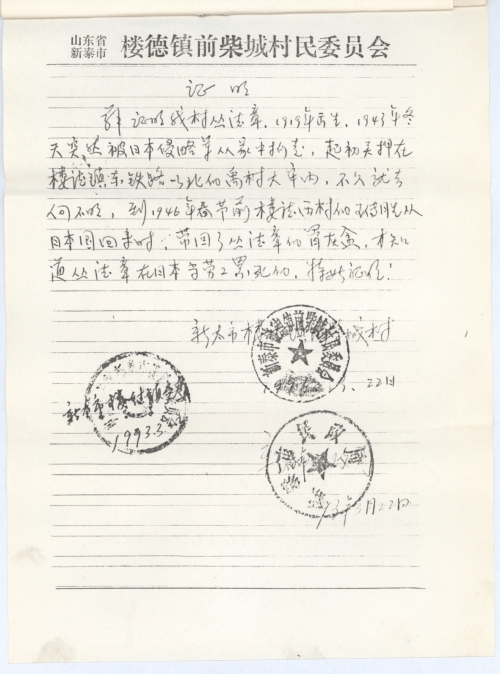 山东省
新泰市 楼德镇前柴城村民委员会
证明
兹证明我村丛法章，1919年出生，1943年冬
天突然被日本侵略军从家中抓走，起初关押在
楼德镇东铁路以北的 村大车内，不久就去
向不明，到1946年春节前楼德西村的 从
日本国回来时，带回了丛法章的骨灰盒，才知
道丛法章在日本当劳工累死的，特此证明！
新太市楼 城村
新泰市楼德镇前柴城村民委员会
22日
1993.3
93年3月22日